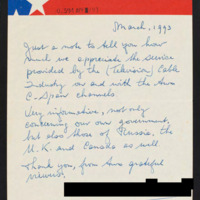 March, 1993
Just a note to tell you how
much we appreciate the service
provided by the (Television) Cable
Industry in and with the two
C-Span channels.
Very informative, not only
concerning our own government,
but also those of Russia, the
U.K. and Canada as well.
Thank you, from two grateful
viewers.